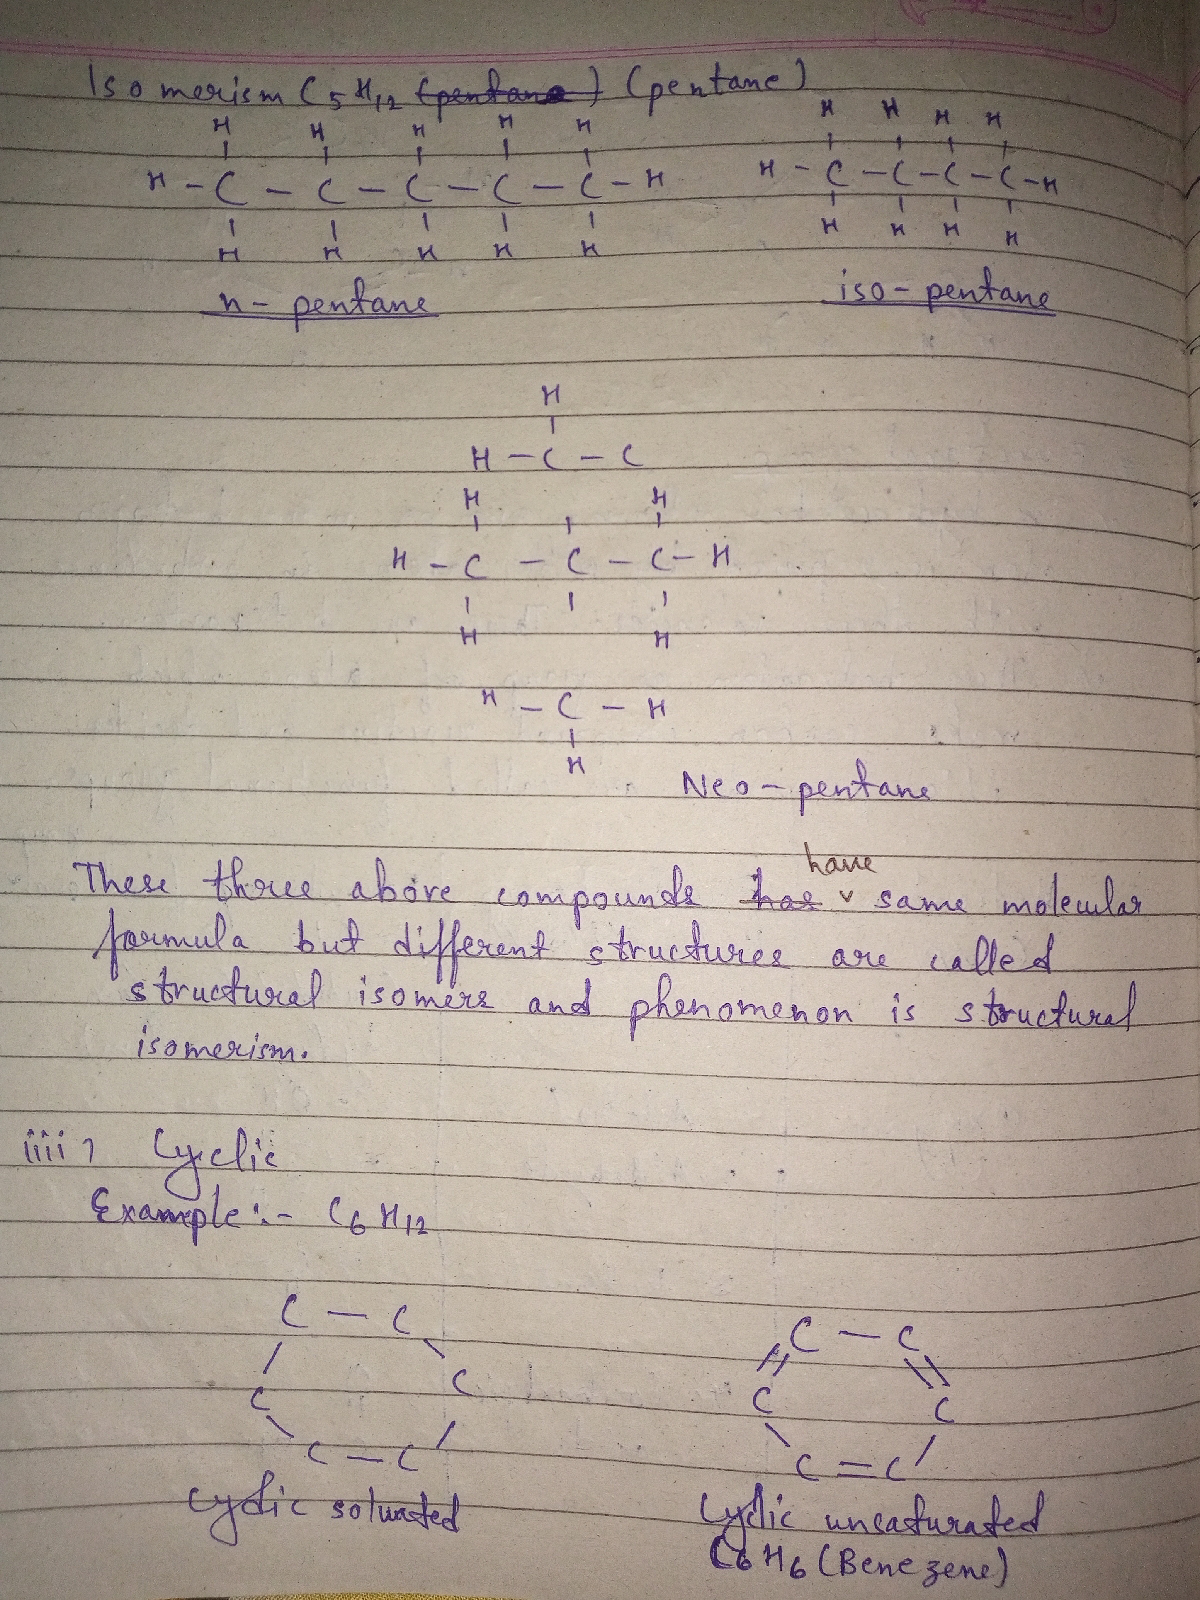 Isomerism C5H12 (pentane) (pentane)
H H H H H
H - C - C - C - C - C - H
H H H H H
n - pentane
H H H H
H - C - C - C - C - H
H H H H
iso - pentane
H
H - C - C
H H
H - C - C - C - H
H H
H - C - H
H
Neo - pentane
have
These three above compounds has ˅ same molecular
formula but different structures are called
structural isomers and phenomenon is structural
isomerism.
iiii) Cyclic
Example :- C6H12
C - C
C C
C - C
Cyclic soturated
C - C
C C
C = C
Cyclic uncaturated
C6H6 (Benezene)